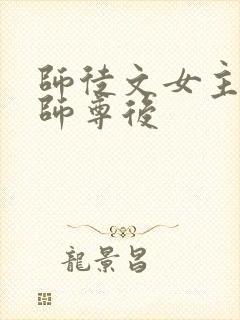 師徒文女主
師尊後
龍景昌